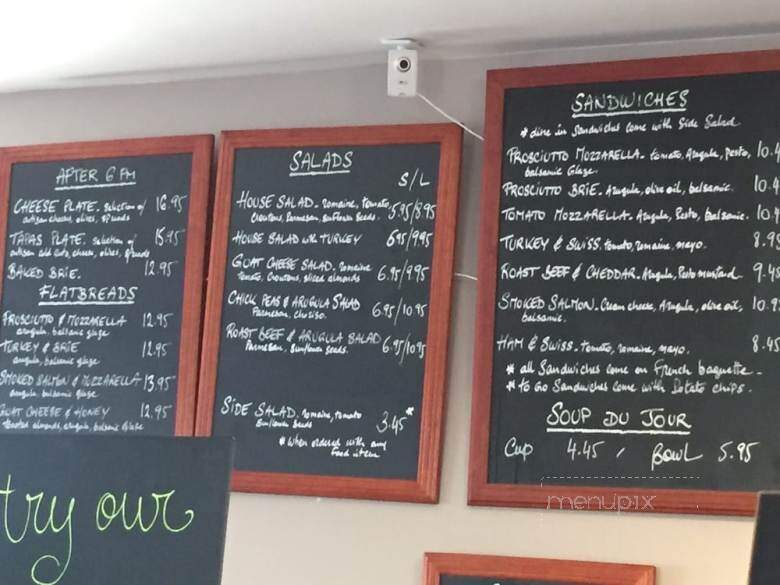 AFTER 6 PM
CHEESE PLATE. selection of 16.95
artisan cheeses, olives, spreads
TAPAS PLATE. selection of 15.95
artisan cold cuts, cheese, olives, spreads
BAKED BRIE. 12.95
FLATBREADS
PROSCIUTTO & MOZZARELLA 12.95
arugula, balsamic glaze
TURKEY & BRIE 12.95
arugula, balsamic glaze
SMOKED SALMON & MOZZARELLA 13.95
arugula balsamic glaze
GOAT CHEESE & HONEY 12.95
toasted almonds, arugula, balsamic glaze
try our
SALADS
S/L
HOUSE SALAD. romaine, tomato,
croutons, Parmesan, sunflower seeds. 5.95/8.95
HOUSE SALAD with TURKEY 6.95/9.95
GOAT CHEESE SALAD. romaine
tomato, croutons, sliced almonds 6.95/9.95
CHICK PEAS & ARUGULA SALAD
Parmesan, chorizo. 6.95/10.95
ROAST BEEF & ARUGULA SALAD
Parmesan, sunflower seeds. 6.95/10.95
SIDE SALAD. romaine, tomato
sunflower seeds 3.45*
* when ordered with any
food item
SANDWICHES
* dine in Sandwiches come with Side Salad
PROSCIUTTO MOZZARELLA. tomato, Arugula, Pesto, 10.4
balsamic Glaze.
PROSCIUTTO BRIE. Arugula, olive oil, balsamic. 10.4
TOMATO MOZZARELLA. Arugula, Pesto, balsamic.
TURKEY & SWISS. tomato, romaine, mayo. 8.9
ROAST BEEF & CHEDDAR. Arugula, Pesto mustard 9.45
SMOKED SALMON. Cream cheese, Arugula, olive oil, 10.9
balsamic.
HAM & SWISS. tomato, romaine, mayo. 8.45
* all Sandwiches come on French baguette.
* to Go Sandwiches come with Potato chips.
SOUP DU JOUR
Cup 4.45 / BOWL 5.95
menupix